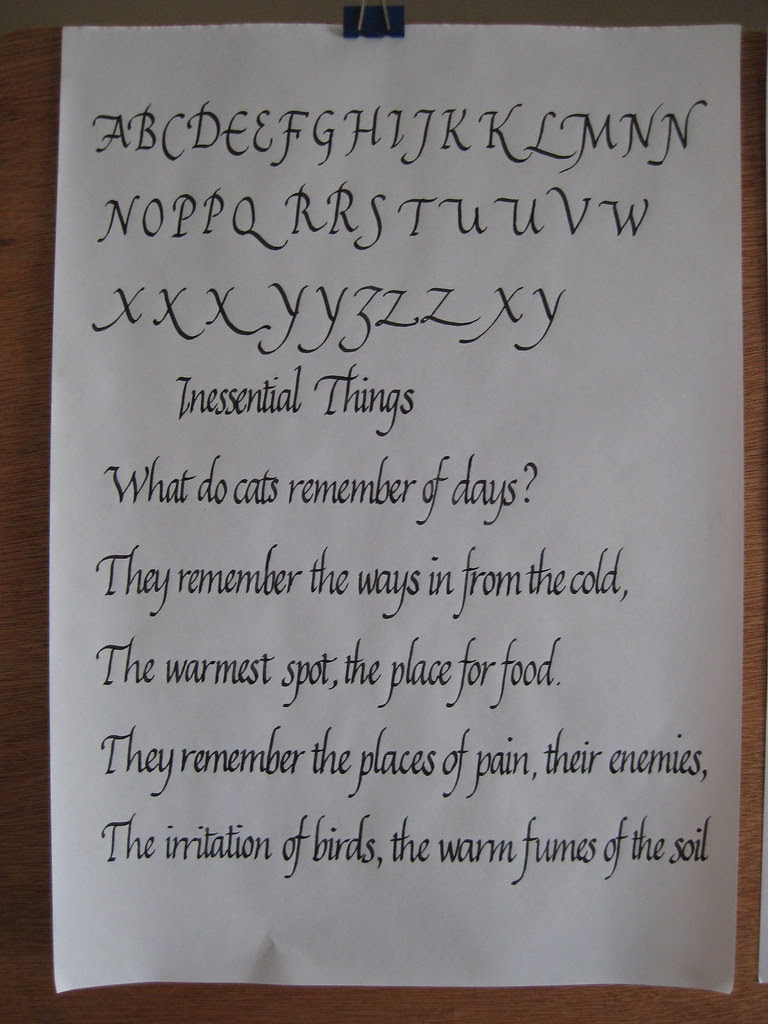 ABCDEEFGHIJKKLMNN
NOPPQRRSTUUVW
XXXYYZZZXY
Inessential Things
What do cats remember of days?
They remember the ways in from the cold,
The warmest spot, the place for food.
They remember the places of pain, their enemies,
The irritation of birds, the warm fumes of the soil